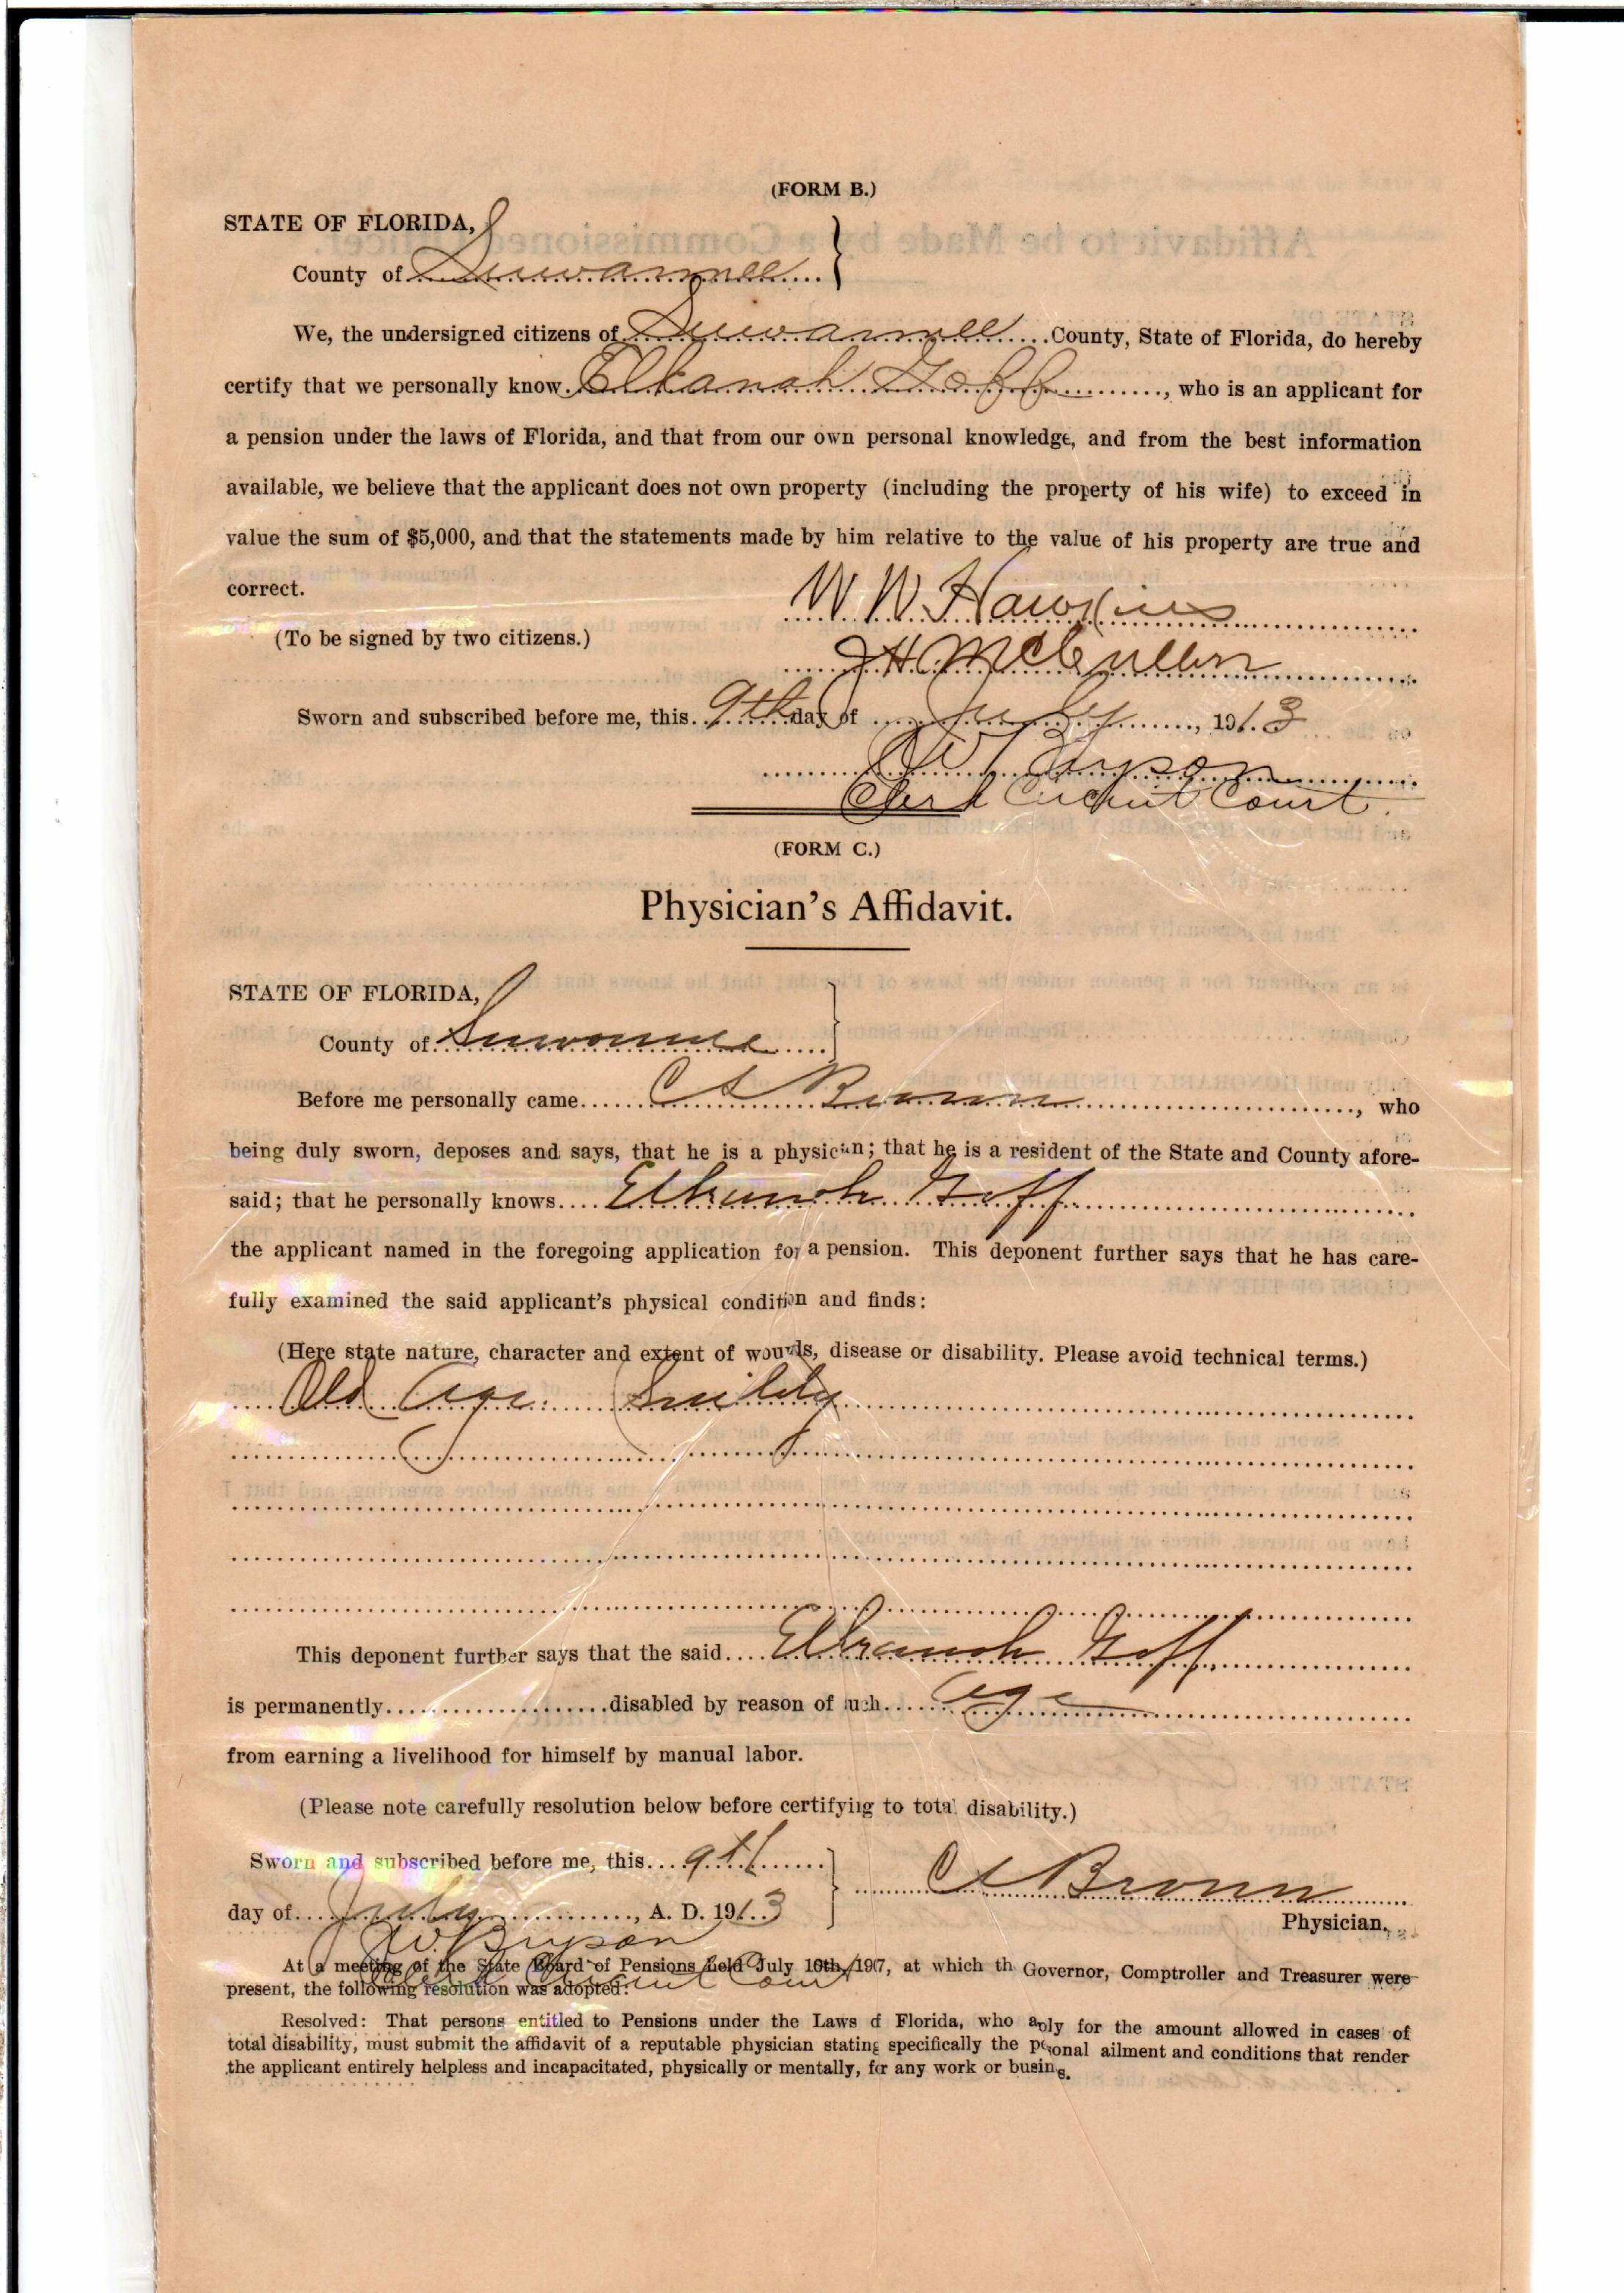 (FORM B.)
STATE OF FLORIDA,
County of Suwannee
We, the undersigned citizens of Suwannee County, State of Florida, do hereby
certify that we personally know Elkanah Goff, who is an applicant for
a pension under the laws of Florida, and that from our own personal knowledge, and from the best information
available, we believe that the applicant does not own property (including the property of his wife) to exceed in
value the sum of $5,000, and that the statements made by him relative to the value of his property are true and
correct.
W. W. Hawkins
(To be signed by two citizens.)
J H McCullen
Sworn and subscribed before me, this 9th day of July, 1913
J W Bryson
Clerk Circuit Court.
(FORM C.)
Physician's Affidavit.
STATE OF FLORIDA,
County of Suwannee
Before me personally came C A Brown, who
being duly sworn, deposes and says, that he is a physician; that he is a resident of the State and County afore-
said; that he personally knows Elkanah Goff
the applicant named in the foregoing application for a pension. This deponent further says that he has care-
fully examined the said applicant's physical condition and finds:
(Here state nature, character and extent of wounds, disease or disability. Please avoid technical terms.)
Old Age. Senility
This deponent further says that the said Elkanah Goff.
is permanently disabled by reason of such Age
from earning a livelihood for himself by manual labor.
(Please note carefully resolution below before certifyiig to total disability.)
Sworn and subscribed before me, this 9th
day of July, A. D. 1913
C A Brown
Physician.
J W. Bryson
Clerk Circuit Court
At a meeting of the State Board of Pensions held July 10th, 1907, at which th Governor, Comptroller and Treasurer were
present, the following resolution was adopted:
Resolved: That persons entitled to Pensions under the Laws of Florida, who aply for the amount allowed in cases of
total disability, must submit the affidavit of a reputable physician stating specifically the personal ailment and conditions that render
the applicant entirely helpless and incapacitated, physically or mentally, for any work or busines.